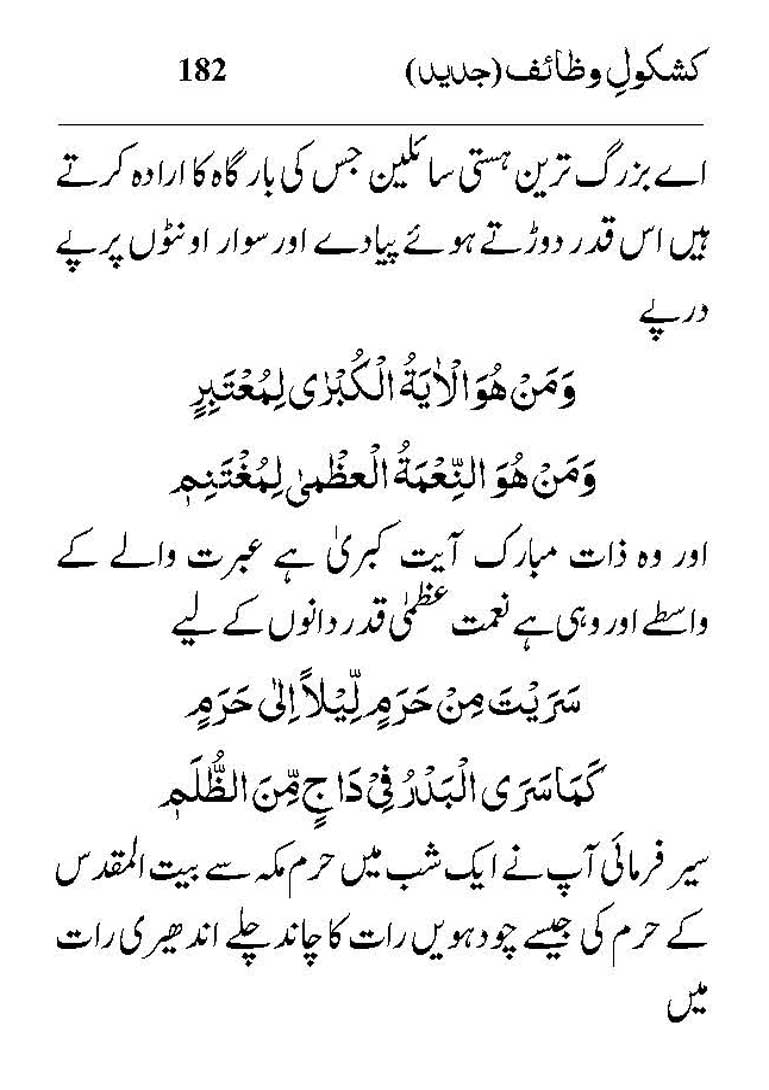 کشکولِ وظائف (جدید) 182
اے بزرگ ترین ہستی سائلین جس کی بارگاہ کا ارادہ کرتے
ہیں اس قدر دوڑتے ہوئے پیادے اور سوار اونٹوں پر پے
درپے
وَمَنْ هُوَ الْاٰيَةُ الْكُبْرٰى لِمُعْتَبِرٍ
وَمَنْ هُوَ النِّعْمَةُ الْعظْمىٰ لِمُغْتَنِمٖ
اور وہ ذات مبارک آیت کبریٰ ہے عبرت والے کے
واسطے اور وہی ہے نعمت عظمٰی قدر دانوں کے لیے
سَرَيْتَ مِنْ حَرَمٍ لِّيْلاً اِلىٰ حَرَمٍ
كَمَا سَرَى الْبَدْرُ فِيْ دَاجٍ مِّنَ الظُّلَمٖ
سیر فرمائی آپ نے ایک شب میں حرم مکہ سے بیت المقدس
کے حرم کی جیسے چودہویں رات کا چاند چلے اندھیری رات
میں